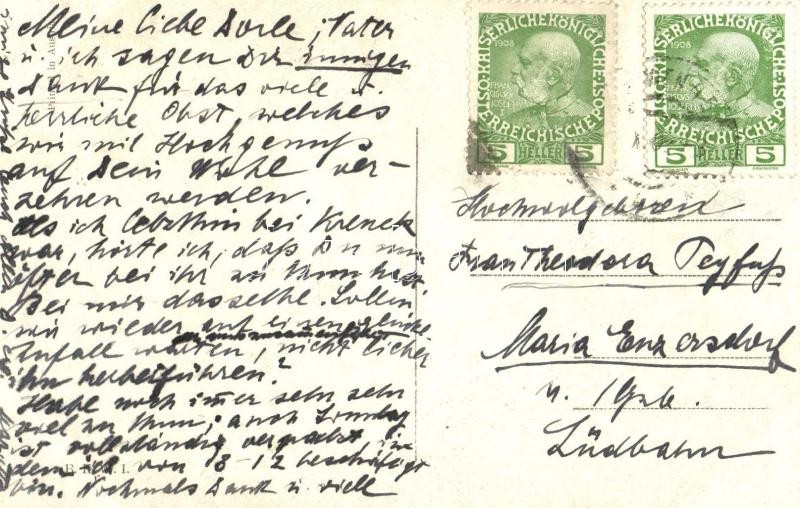 Meine liebe Dorle, Vater
u. ich sagen Dir innigen
Dank für das viele u.
herrliche Obst, welches
wir mit Hochgenuß
auf Dein Wohl ver-
zehren werden.
Als ich letzthin bei Krenek
war, hörte ich, daß Du nun
öfter bei ihr zu tun hast.
Bei mir dasselbe. Sollen
wir wieder auf einen
Zufall warten, nicht lieber
ihn herbeiführen?
Habe noch immer sehr sehr
viel zu tun; auch Sonntag
ist vollständig verpackt, in
dem ich von 8-12 beschäftigt
bin. Nochmals Dank u. viele
Printed in Aus
B. K. W. I.
KAISERLICHE KÖNIGLICHE
ÖSTERREICHISCHE POST
1908
FRANCISCVS
IOSEPHVS I
5 HELLER 5
KAISERLICHE KÖNIGLICHE
ÖSTERREICHISCHE POST
1908
FRANCISCVS
IOSEPHVS I
5 HELLER 5
WIEN
Hochwolgeboren
Frau Theodora Peyfuß
Maria Enzersdorf
a. /Geb.
Südbahn